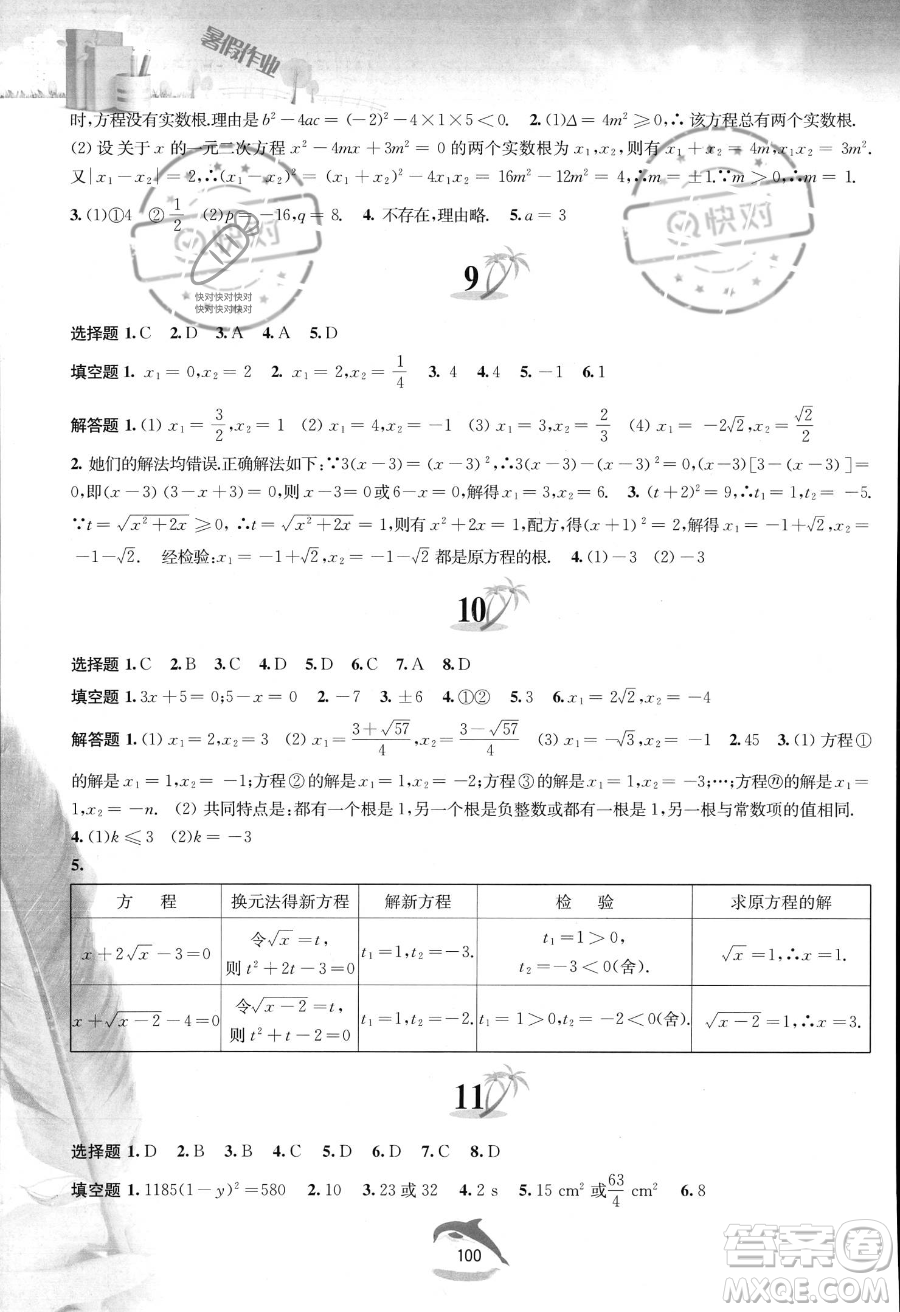 暑假作业
时,方程没有实数根.理由是b²－4ac＝(－2)²－4×1×5＜0. 2. (1)Δ＝4m²≥0,∴ 该方程总有两个实数根.
(2) 设 关于 x 的一元二次方程 x²－4mx＋3m²＝0 的两个实数根为 x₁,x₂,则有 x₁＋x₂＝4m,x₁x₂＝3m².
又|x₁－x₂|＝2,∴(x₁－x₂)²＝(x₁＋x₂)²－4x₁x₂＝16m²－12m²＝4,∴m＝±1.∵m≥0,∴m＝1.
3. (1)①4 ②1/2 (2)p＝－16,q＝8. 4. 不存在,理由略. 5. a＝3
快对
快对快对快对
快对快对快对
快对
9
选择题 1. C 2. D 3. A 4. A 5. D
填空题 1. x₁＝0,x₂＝2 2. x₁＝2,x₂＝1/4 3. 4 4. 4 5. －1 6. 1
解答题 1. (1) x₁＝3/2,x₂＝1 (2) x₁＝4,x₂＝－1 (3) x₁＝3,x₂＝2/3 (4) x₁＝－2√2,x₂＝√2/2
2. 她们的解法均错误.正确解法如下:∵3(x－3)＝(x－3)²,∴3(x－3)－(x－3)²＝0,(x－3)[3－(x－3)]＝
0,即(x－3)(3－x＋3)＝0,则x－3＝0或6－x＝0,解得x₁＝3,x₂＝6. 3. (t＋2)²＝9,∴t₁＝1,t₂＝－5.
∵t＝√(x²＋2x)≥0,∴t＝√(x²＋2x)＝1,则有 x²＋2x＝1,配方,得(x＋1)²＝2,解得 x₁＝－1＋√2,x₂＝
－1－√2. 经检验:x₁＝－1＋√2,x₂＝－1－√2 都是原方程的根. 4. (1)－3 (2)－3
10
选择题 1. C 2. B 3. C 4. D 5. D 6. C 7. A 8. D
填空题 1. 3x＋5＝0;5－x＝0 2. －7 3. ±6 4. ①② 5. 3 6. x₁＝2√2,x₂＝－4
解答题 1. (1) x₁＝2,x₂＝3 (2) x₁＝(3＋√57)/4,x₂＝(3－√57)/4 (3) x₁＝－√3,x₂＝－1 2. 45 3. (1) 方程①
的解是 x₁＝1,x₂＝－1;方程②的解是 x₁＝1,x₂＝－2;方程③的解是 x₁＝1,x₂＝－3;…;方程ⓝ的解是x₁＝
1,x₂＝－n. (2) 共同特点是:都有一个根是1,另一个根是负整数或都有一个根是1,另一个根与常数项的值相同.
4. (1)k≤3 (2)k＝－3
5.
方 程 换元法得新方程 解新方程 检 验 求原方程的解
x＋2√x－3＝0 令√x＝t,则 t²＋2t－3＝0 t₁＝1,t₂＝－3. t₁＝1＞0,t₂＝－3＜0(舍). √x＝1,∴x＝1.
x＋√(x－2)－4＝0 令√(x－2)＝t,则 t²＋t－2＝0 t₁＝1,t₂＝－2. t₁＝1＞0,t₂＝－2＜0(舍). √(x－2)＝1,∴x＝3.
11
选择题 1. D 2. B 3. B 4. C 5. D 6. D 7. C 8. D
填空题 1. 1185(1－y)²＝580 2. 10 3. 23 或 32 4. 2 s 5. 15 cm² 或63/4 cm² 6. 8
100
答案卷
MXQE.COM